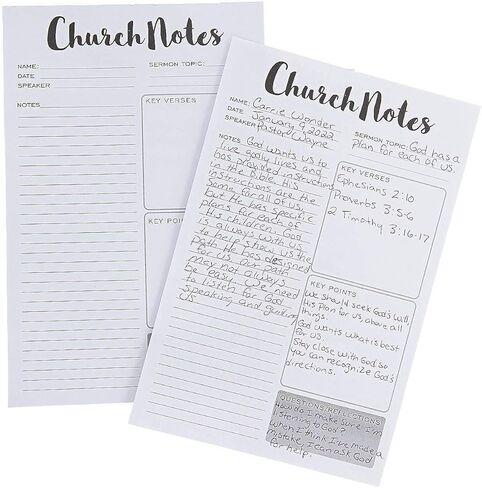 Church Notes
NAME:
DATE
SPEAKER
SERMON TOPIC:
NOTES
KEY VERSES
KEY POINTS
Church Notes
NAME: Carrie Wonder
DATE January 9, 2022
SPEAKER Pastor Wayne
SERMON TOPIC: God has a
plan for each of us.
NOTES God wants us to
live godly lives and
has provided instructions
in the Bible. His
instructions are the
same for all of us,
but He has specific
plans for each of
His children. God
is always with us
to help show us the
path He has designed
for us. Our path
may not always
be easy. We need
to listen for God
speaking and guiding
us
KEY VERSES
Ephesians 2:10
Proverbs 3:5-6
2 Timothy 3:16-17
KEY POINTS
We should seek God's Will,
His plan for us, above all
things.
God wants what is best
for us.
Stay close with God so
you can recognize God's
directions.
QUESTIONS/REFLECTIONS
How do I make sure I'm
listening to God?
When I think I've made a
mistake, I can ask God
for help.